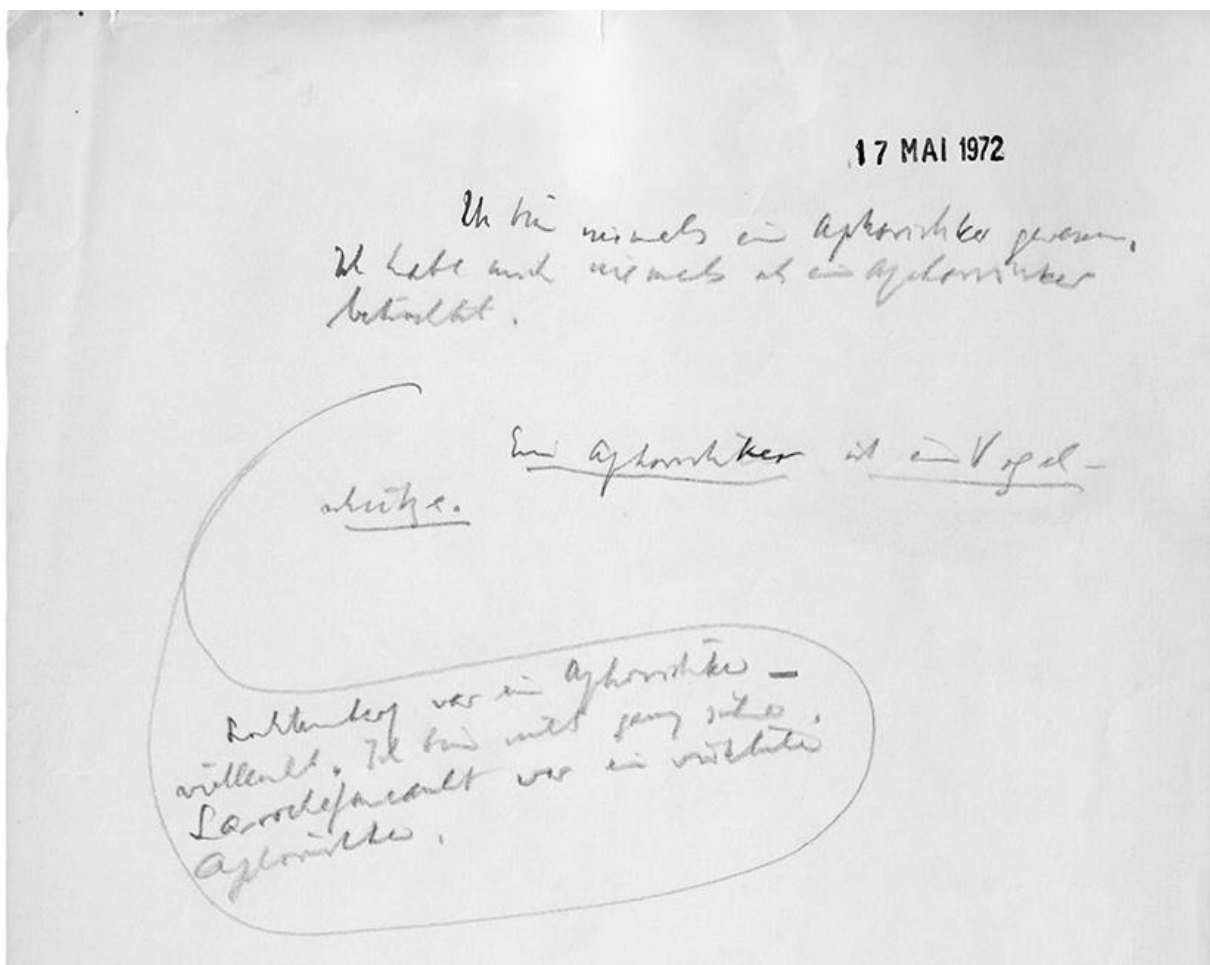 17 MAI 1972
Ich bin niemals ein Aphoristiker gewesen.
Ich habe mich niemals als ein Aphoristiker
betrachtet.
Ein Aphoristiker ist ein Vogel-
schütze.
Lichtenberg war ein Aphoristiker –
vielleicht. Ich bin nicht ganz sicher.
Larochefoucauld war ein wirklicher
Aphoristiker.